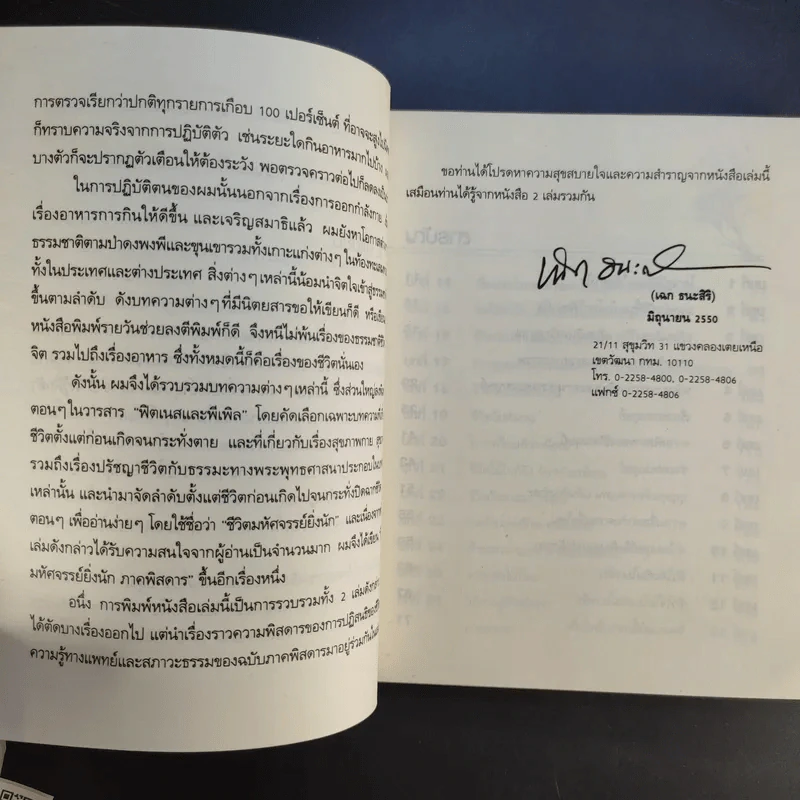 การตรวจเรียกว่าปกติทุกรายการเกือบ 100 เปอร์เซ็นต์ ที่อาจจะสูงไป
ก็ทราบความจริงจากการปฏิบัติตัว เช่นระยะใดกินอาหารมากไปบ้าง
บางตัวก็จะปรากฏตัวเตือนให้ต้องระวัง พอตรวจคราวต่อไปก็ลดลง
ในการปฏิบัติตนของผมนั้นนอกจากเรื่องการออกกำลังกาย
เรื่องอาหารการกินให้ดีขึ้น และเจริญสมาธิแล้ว ผมยังหาโอกาส
ธรรมชาติตามป่าดงพงพีและขุนเขารวมทั้งเกาะแก่งต่างๆ ในท้องทะเล
ทั้งในประเทศและต่างประเทศ สิ่งต่างๆ เหล่านี้น้อมนำจิตใจเข้าสู่
ขึ้นตามลำดับ ดังบทความต่างๆ ที่มีนิตยสารขอให้เขียนก็ดี หรือ
หนังสือพิมพ์รายวันช่วยลงตีพิมพ์ก็ดี จึงหนีไม่พ้นเรื่องของธรรมชาติ
จิต รวมไปถึงเรื่องอาหาร ซึ่งทั้งหมดนี้ก็คือเรื่องของชีวิตนั่นเอง
ดังนั้น ผมจึงได้รวบรวมบทความต่างๆ เหล่านี้ ซึ่งส่วนใหญ่
ตอนๆ ในวารสาร "ฟิตเนสและพีเพิล" โดยคัดเลือกเฉพาะบทความ
ชีวิตตั้งแต่ก่อนเกิดจนกระทั่งตาย และที่เกี่ยวกับเรื่องสุขภาพกาย
รวมถึงเรื่องปรัชญาชีวิตกับธรรมะทางพระพุทธศาสนาประกอบ
เหล่านั้น และนำมาจัดลำดับตั้งแต่ชีวิตก่อนเกิดไปจนกระทั่งปิดฉากชีวิต
ตอนๆ เพื่ออ่านง่ายๆ โดยใช้ชื่อว่า "ชีวิตมหัศจรรย์ยิ่งนัก" และเนื่องจาก
เล่มดังกล่าวได้รับความสนใจจากผู้อ่านเป็นจำนวนมาก ผมจึงได้เขียน
มหัศจรรย์ยิ่งนัก ภาคพิสดาร" ขึ้นอีกเรื่องหนึ่ง
อนึ่ง การพิมพ์หนังสือเล่มนี้เป็นการรวบรวมทั้ง 2 เล่มดังกล่าว
ได้ตัดบางเรื่องออกไป แต่นำเรื่องราวความพิสดารของการปฏิสนธิของ
ความรู้ทางแพทย์และสภาวะธรรมของฉบับภาคพิสดารมาอยู่ร่วมกัน
ขอท่านได้โปรดหาความสุขสบายใจและความสำราญจากหนังสือเล่มนี้
เสมือนท่านได้รู้จากหนังสือ 2 เล่มรวมกัน
(เฉก ธนะสิริ)
มิถุนายน 2550
21/11 สุขุมวิท 31 แขวงคลองเตยเหนือ
เขตวัฒนา กทม. 10110
โทร. 0-2258-4800, 0-2258-4806
แฟกซ์ 0-2258-4806